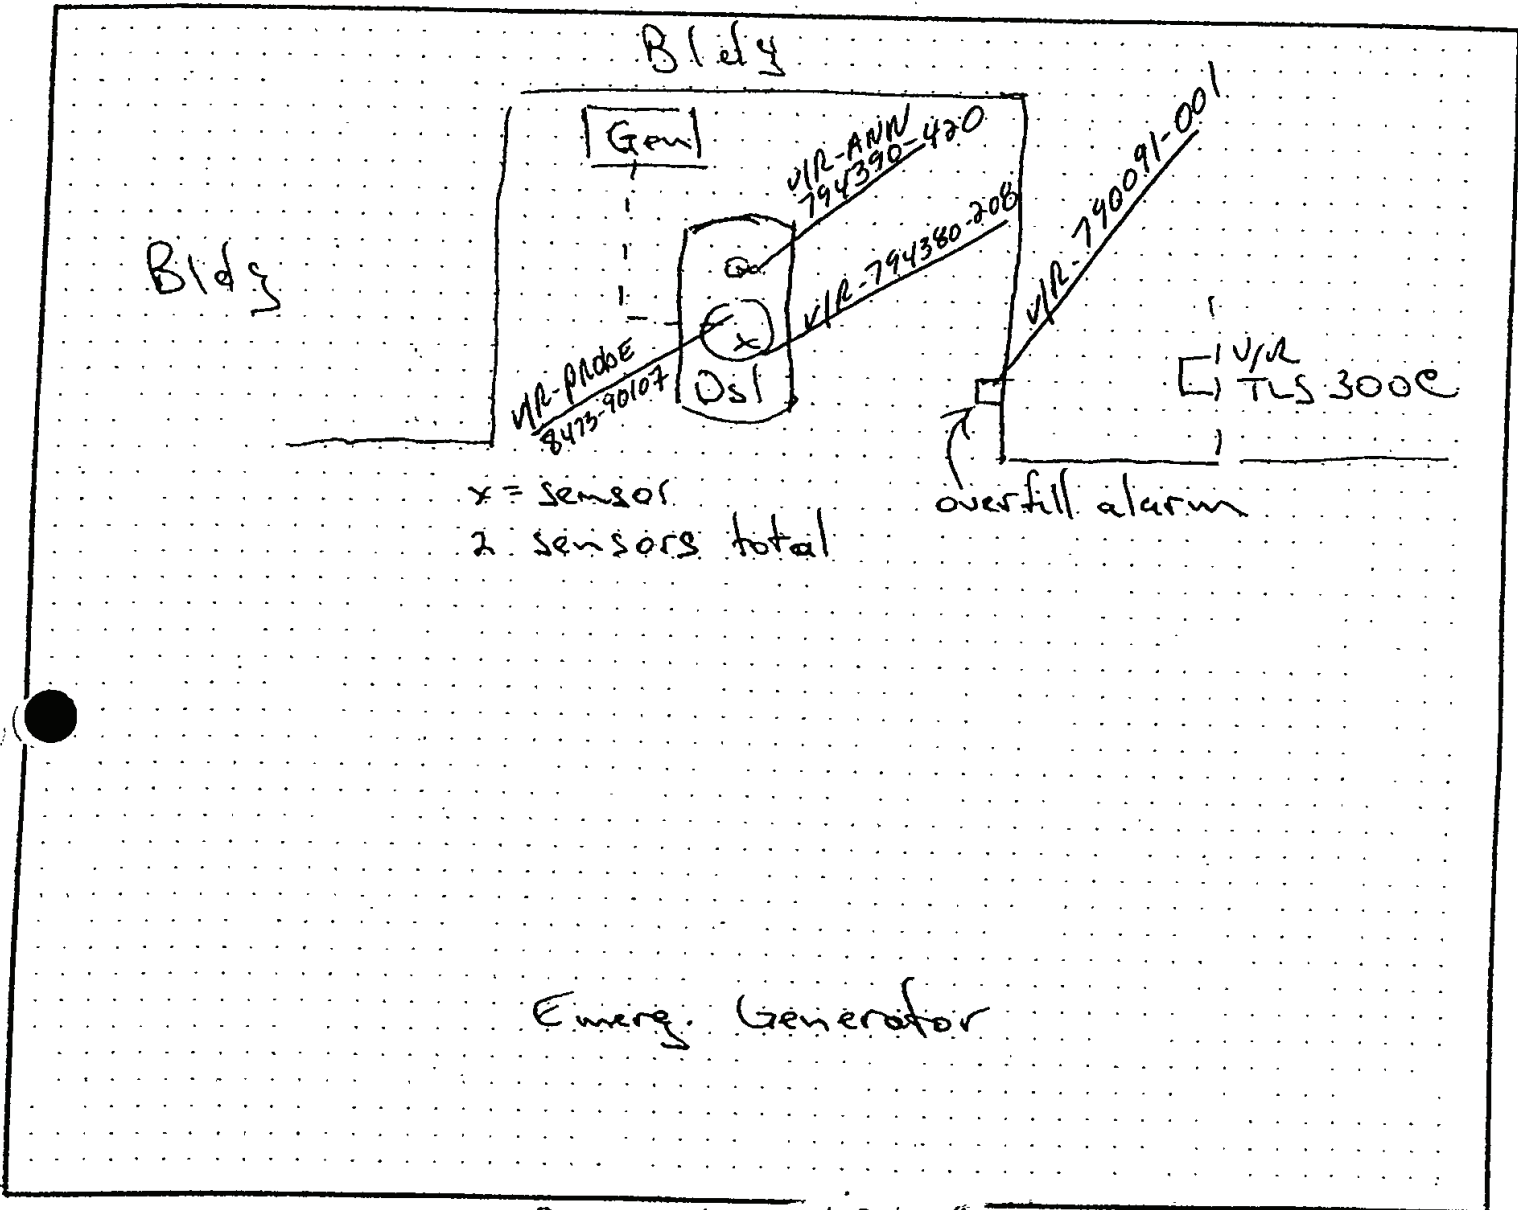 Bldg
Gen
V/R-ANN
794390-420
V/R-794380-208
V/R-790091-001
Bldg
V/R-PROBE
8473-90107
x
Dsl
V/R
TLS 300C
x = sensor
2 sensors total
overfill alarm
Emerg. Generator